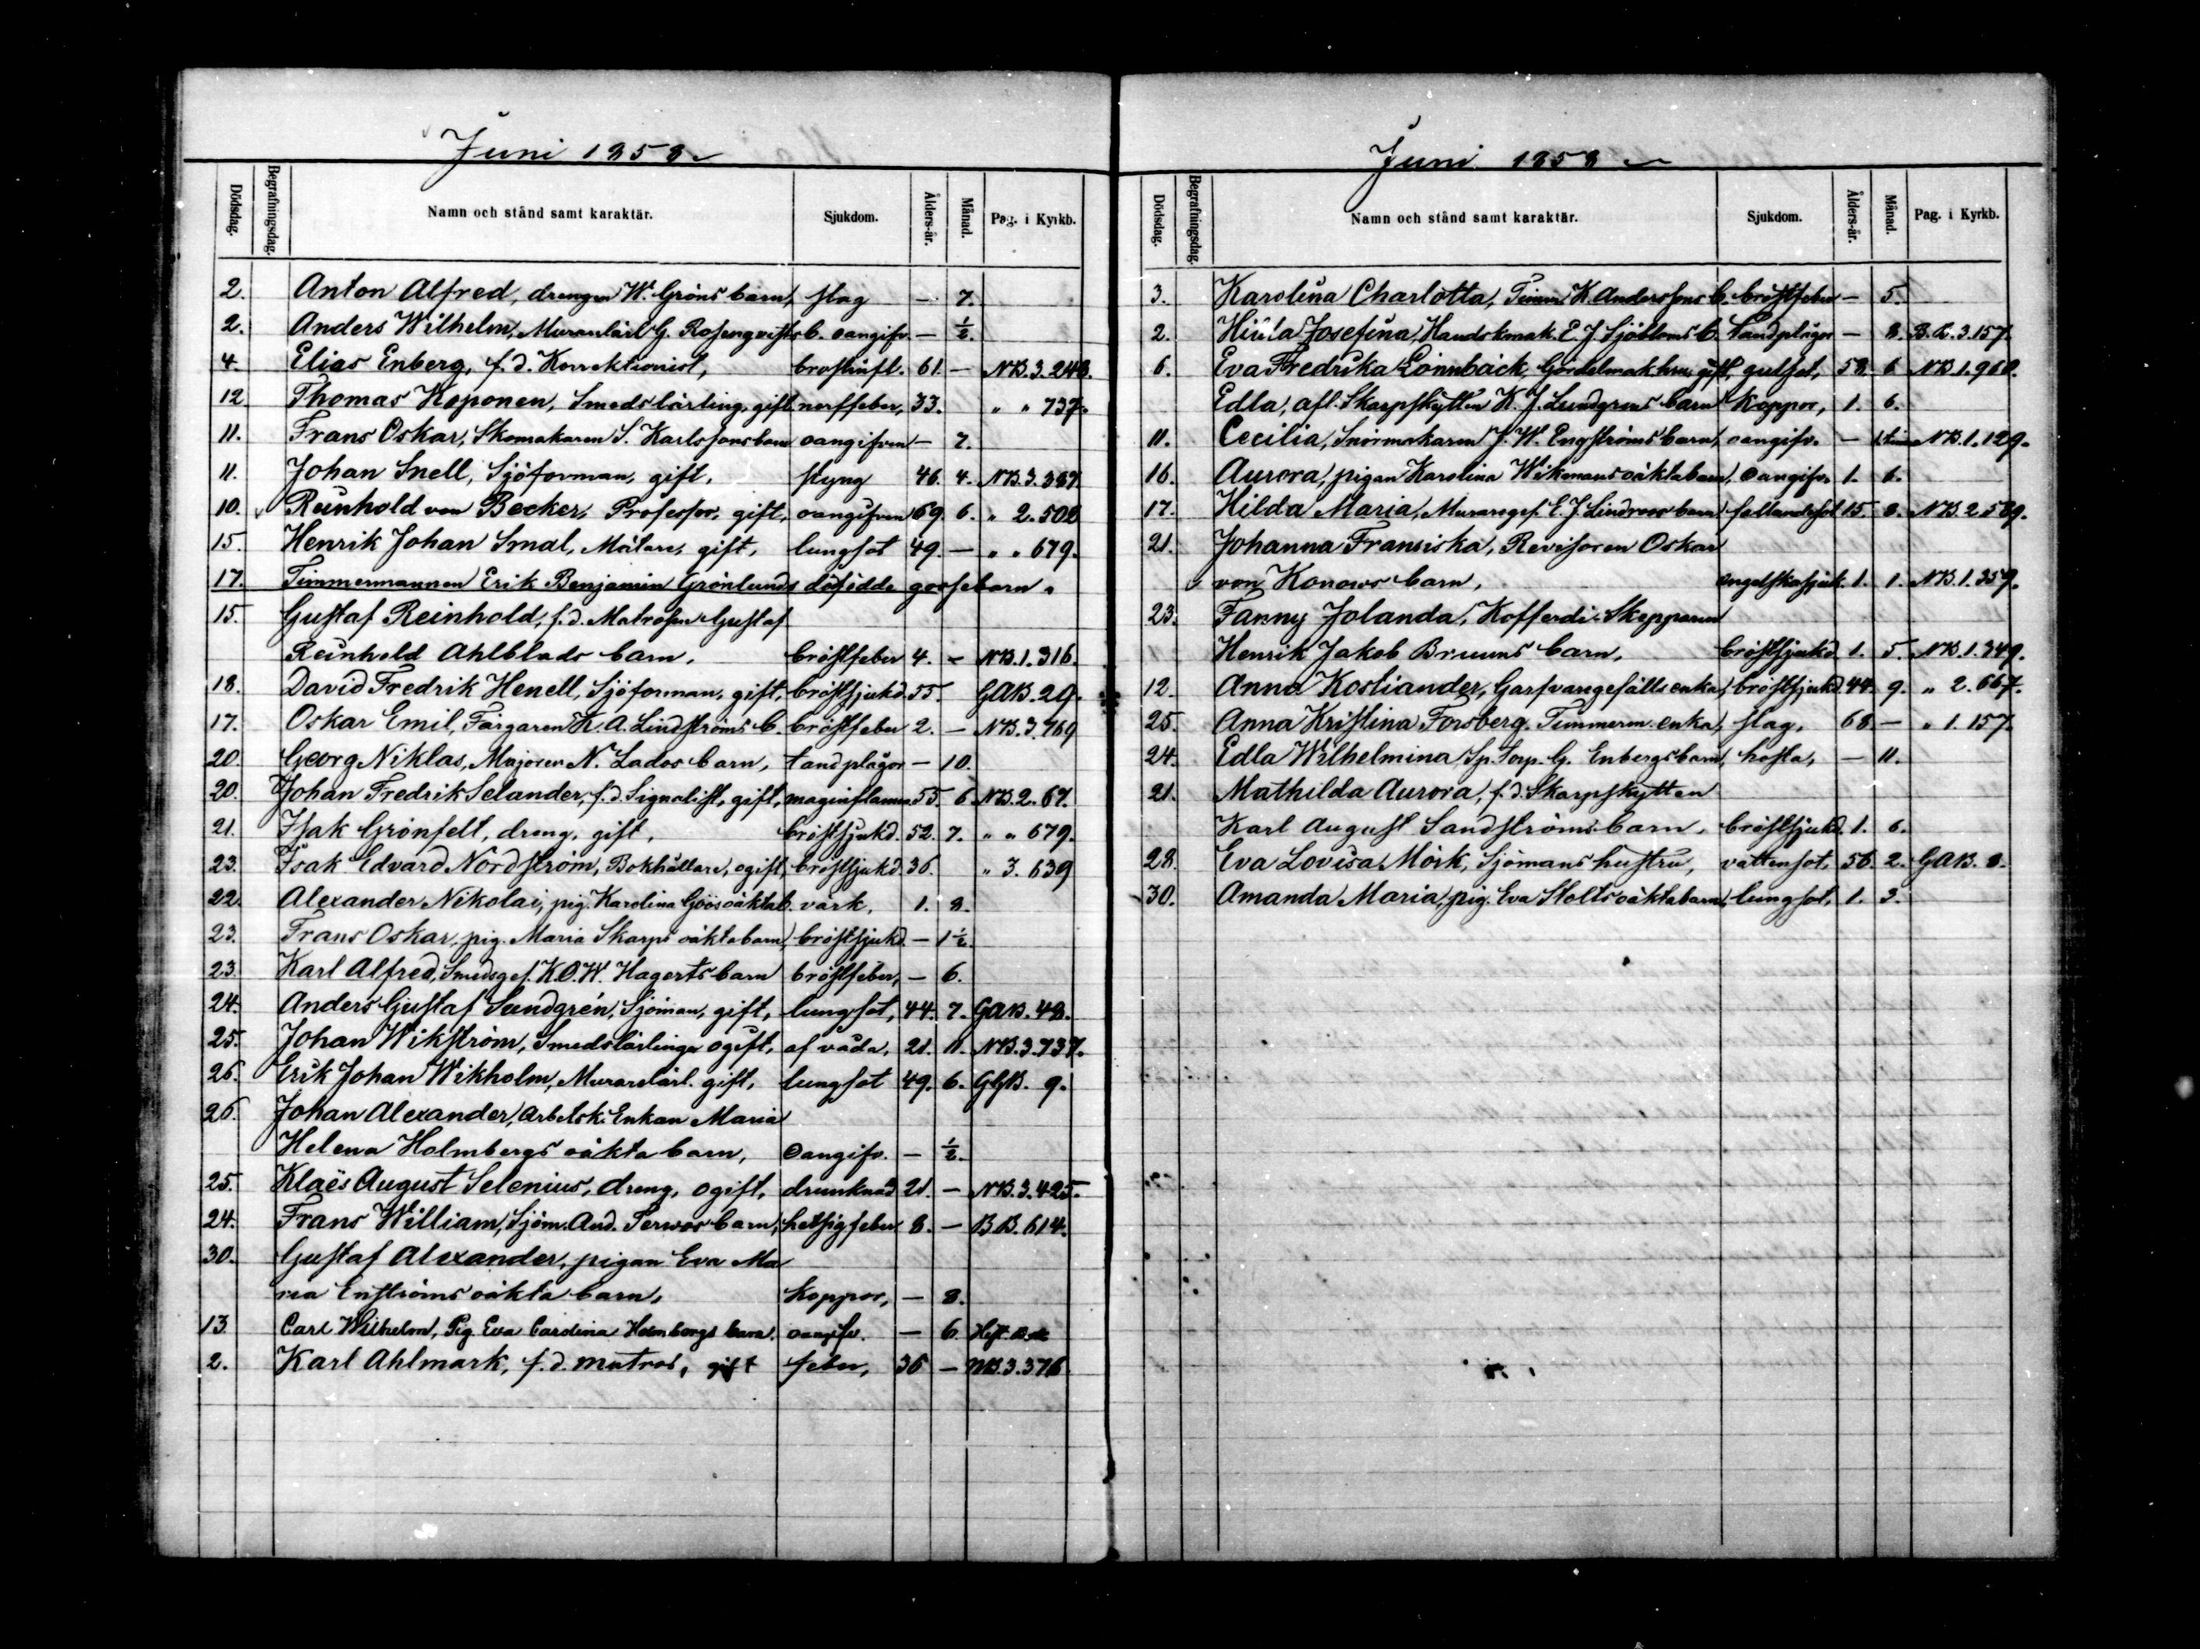 Juni 1858
Dödsdag. Begrafningsdag. Namn och stånd samt karaktär. Sjukdom. Ålders-år. Månad. Pag. i Kyrkb.
2. Anton Alfred, drengen W. Gröns barn, slag — 7.
2. Anders Wilhelm, Murarelärl. G. Rosenqvists b. oangifv. — ½.
4. Elias Enberg, f.d. Korrektionist, bröstinfl. 61. — NB. 3. 248.
12. Thomas Koponen, Smedslärling, gift nerffeber, 33. " " 737.
11. Frans Oskar, Skomakaren S. Karlssons barn oangifven — 7.
11. Johan Snell, Sjöforman, gift, styng 46. 4. NB. 3. 387.
10. Reinhold von Becker, Professor, gift, oangifven 69. 6. " 2. 502
15. Henrik Johan Smal, Målare, gift, lungsot 49. — " " 679.
17. Timmermannen Erik Benjamin Grönlunds dödfödde gossebarn.
15. Gustaf Reinhold, f.d. Matrosen Gustaf
Reinhold Ahlblads barn, bröstfeber 4. — NB. 1. 316.
18. David Fredrik Henell, Sjöforman, gift, bröstsjukd. 55. GAB. 29.
17. Oskar Emil, Färgaren K. A. Lindströms b. bröstfeber 2. — NB. 3. 769
20. Georg Niklas, Majoren N. Lados barn, tandplågor — 10.
20. Johan Fredrik Selander, f.d. Signalist, gift, maginflamm 55. 6. NB. 2. 67.
21. Isak Grönfelt, dreng, gift, bröstsjukd. 52. 7. " " 679.
23. Isak Edvard Nordström, Bokhållare, ogift, bröstsjukd. 36. " 3. 639
22. Alexander Nikolai, pig. Karolina Göös oäkta b. värk, 1. 8.
23. Frans Oskar, pig. Maria Skarps oäkta barn, bröstsjukd. — 1½.
23. Karl Alfred, Smedsges. K. O. W. Hagerts barn bröstfeber, — 6.
24. Anders Gustaf Sundgrén, Sjöman, gift, lungsot, 44. 7. GAB. 48.
25. Johan Wikström, Smedslärlinge ogift, af våda, 21. 11. NB. 3. 737.
26. Erik Johan Wikholm, Murarelärl. gift, lungsot 49. 6. GGB. 9.
26. Johan Alexander, Arbetsk. Enkan Maria
Helena Holmbergs oäkta barn, oangifv. — ½.
25. Klaës August Selenius, dreng, ogift, drunknad 21. — NB. 3. 425.
24. Frans William, Sjöm. And. Terwos barn, hetsigfeber 8. — BB. 614.
30. Gustaf Alexander, pigan Eva Ma
ria Enströms oäkta barn, koppor, — 8.
13. Carl Wilhelm, Pig. Eva Carolina Holmbergs barn. oangifv. — 6.
2. Karl Ahlmark, f.d. matros, gift feber, 36 — NB. 3. 376
Juni 1858
Dödsdag. Begrafningsdag. Namn och stånd samt karaktär. Sjukdom. Ålders-år. Månad. Pag. i Kyrkb.
3. Karolina Charlotta, Timm. K. Anderssons b. bröstfeber — 5.
2. Josefina, Handskmak. E. J. Sjöbloms b. tandplågor — 8. 3. 157.
6. Eva Fredrika Lönnbäck, Gördelmak. hru gift, gulsot, 58. 6 NB. 1. 968.
Edla, afl. Skarpskytten K. J. Lundgrens barn koppor, 1. 6.
11. Cecilia, Snörmakaren J. W. Engströms barn, oangifv. — NB. 1. 129.
16. Aurora, pigan Karolina Wikmans oäkta barn, oangifv. 1. 6.
17. Hilda Maria, Murareges. E. J. Lindroos barn fallandesot 15. 8. NB. 2. 589.
21. Johanna Fransiska, Revisoren Oskar
von Konows barn, engelska sjuk. 1. 1. NB. 1. 359.
23. Fanny Jolanda, Kofferdi-Skepparen
Henrik Jakob Bruuns barn, bröstsjukd. 1. 5. NB. 1. 349.
12. Anna Kosliander, Garfvaregesälls enka, bröstsjukd. 44. 9. " 2. 667.
25. Anna Kristina Forsberg, Timmerm. enka, slag, 68 — " 1. 157.
24. Edla Wilhelmina, G. Enbergs barn, hosta, — 11.
21. Mathilda Aurora, f.d. Skarpskytten
Karl August Sandströms barn, bröstsjukd. 1. 6.
28. Eva Lovisa Mörk, Sjömans hustru, vattensot, 56. 2. GAB. 8.
30. Amanda Maria, pig. Eva Stolts oäkta barn, lungsot, 1. 3.